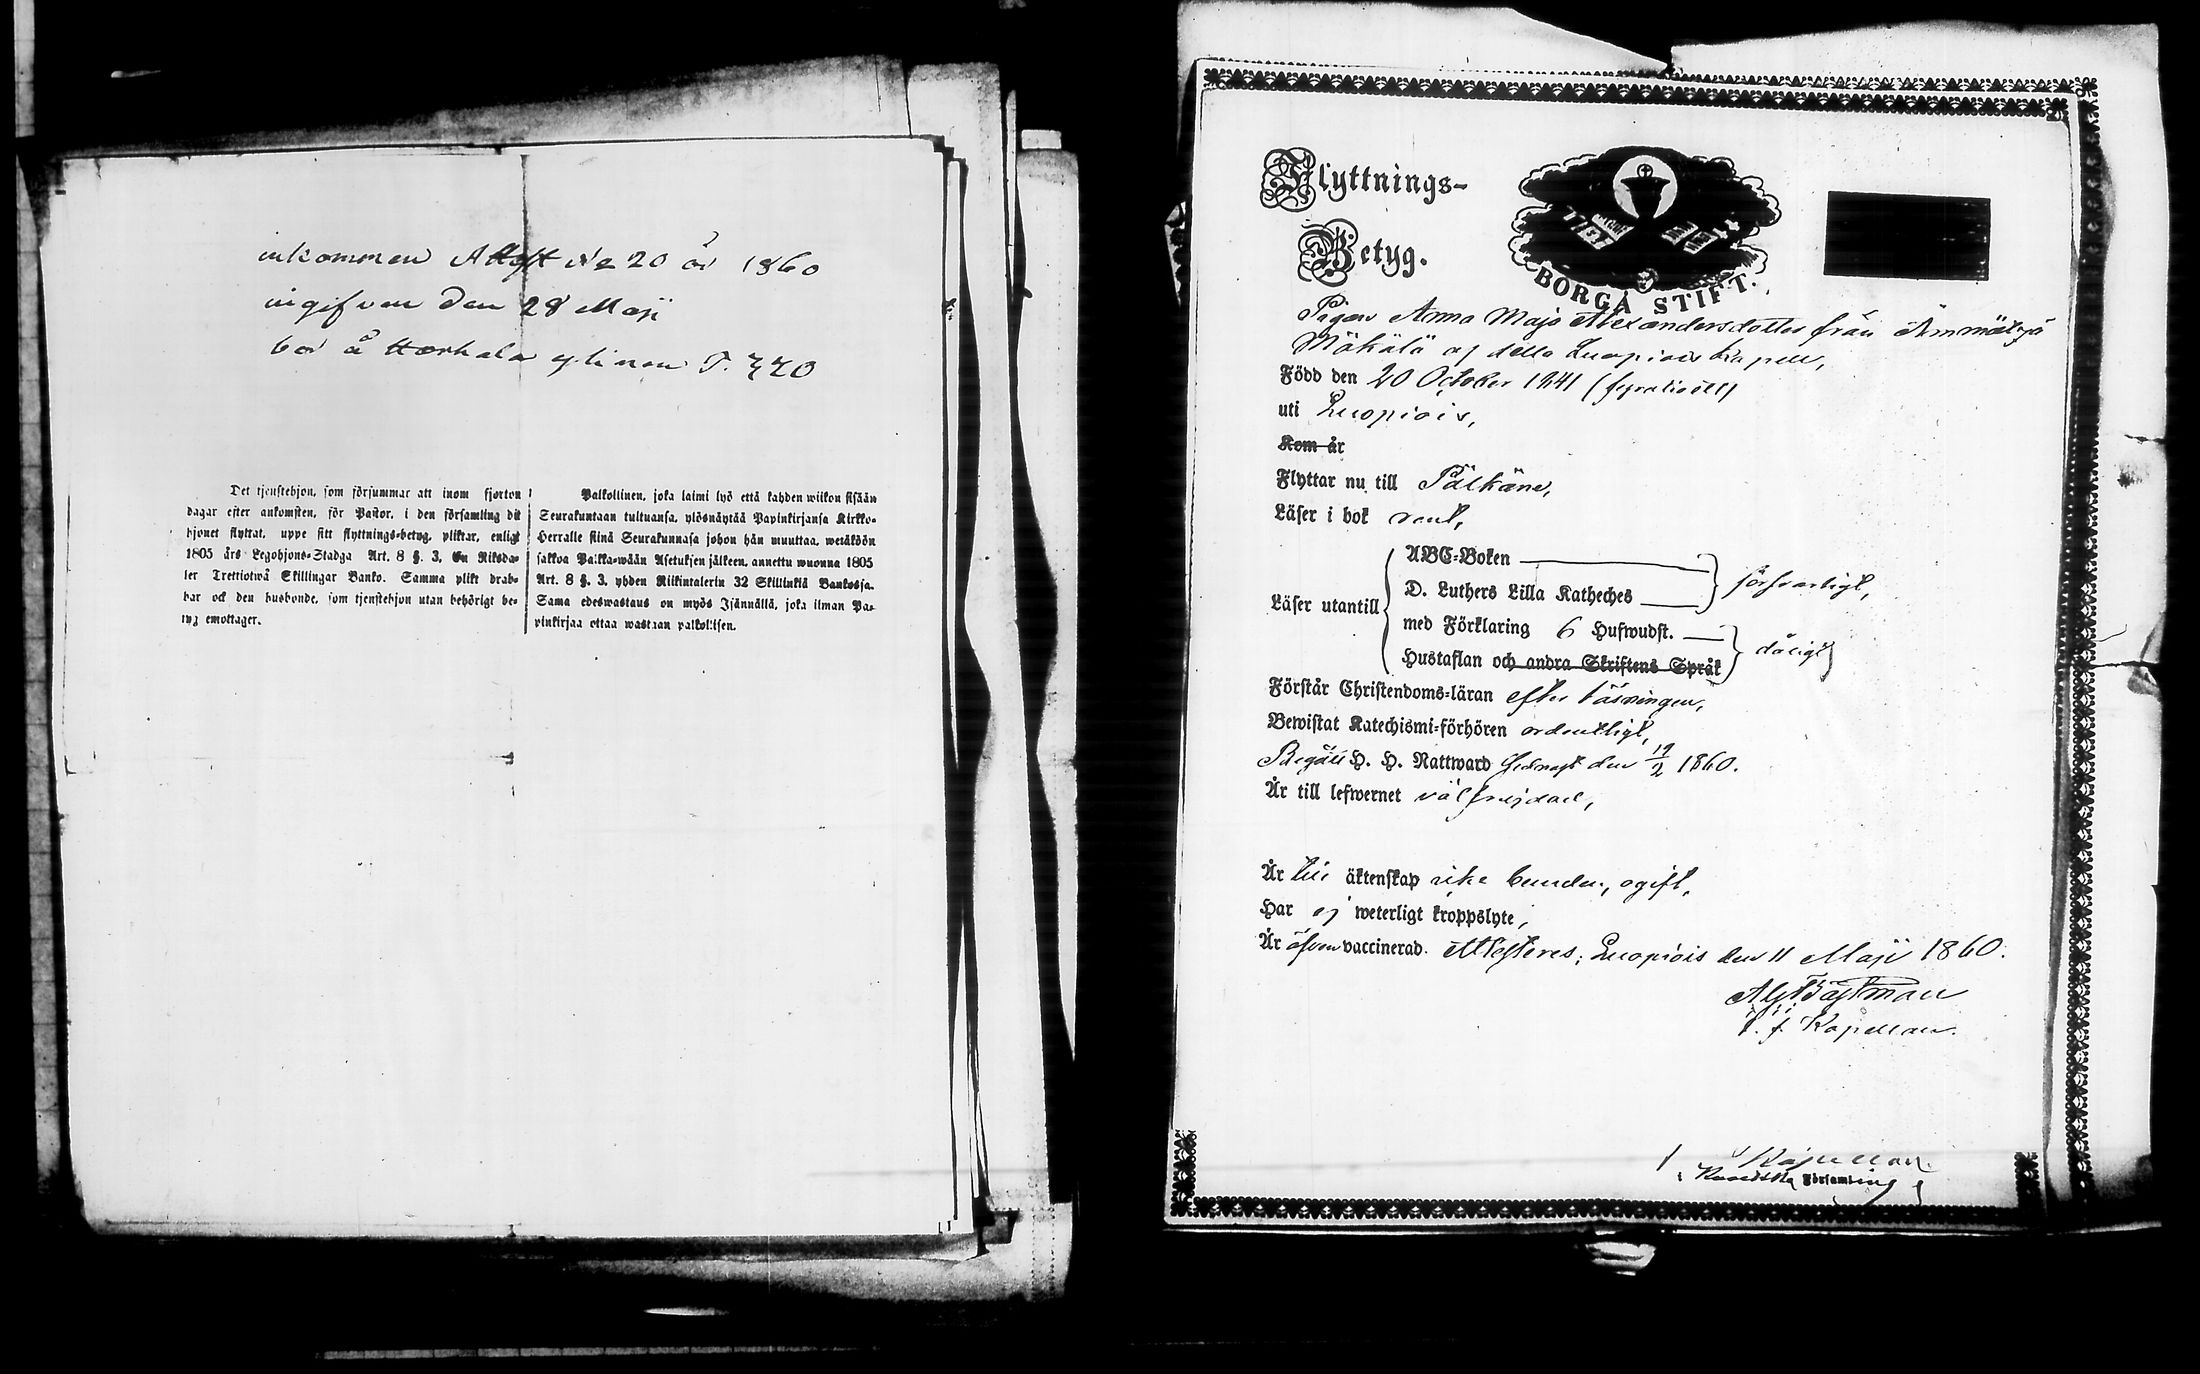 inkommen Attest No 20 år 1860
ingifven den 28 Maji
bor å Harhala
P. 720
Det tjenstehjon, som försummar att inom fjorton
dagar efter ankomsten, för Pastor, i den församling dit
hjonet flyttat, uppe sitt flyttnings-betyg, pliktar, enligt
1805 års Legohjons-Stadga Art. 8 §. 3, En Riksda-
ler Trettiotwå Skillingar Banko. Samma plikt drab-
bar ock den husbonde, som tjenstehjon utan behörigt be-
tyg emottager.
Palkollinen, joka laimi lyö että kahden wiikon sisään
Seurakuntaan tultuansa, ylösnäytää Papinkirjansa Kirkko-
Herralle siinä Seurakunnasa johon hän muuttaa, wetäköön
sakkoa Palkka-wään Asetuksen jälkeen, annettu wuonna 1805
Art. 8 §. 3, yhden Riikintalerin 32 Skillinkiä Bankossa.
Sama edeswastaus on myös Isännällä, joka ilman Pa-
pinkirjaa ottaa wastaan palkollisen.
Flyttnings-
Betyg.
BORGÅ STIFT.
Pigan Anna Maja Alexandersdotter från Ämmätsä
Mäkälä af detta Luopiois Kapell,
Född den 20 October 1841 (fyratioett)
uti Luopiois,
Kom år
Flyttar nu till Pälkäne,
Läser i bok rent,
Läser utantill
ABC-Boken
D. Luthers Lilla Katheches
försvarligt,
med Förklaring 6 Hufwudst.
Hustaflan och andra Skriftens Språk
dåligt,
Förstår Christendoms-läran efter läsningen,
Bewistat Katechismi-förhören ordentligt,
Begått H. H. Nattward sednast den 19/2 1860.
Är till lefwernet välfrejdad,
Är till äktenskap icke bunden, ogift,
Har ej weterligt kroppslyte,
Är äfven vaccinerad. Attesteres; Luopiois den 11 Maji 1860.
t. f. Kapellan.
Kapellan.
Församling